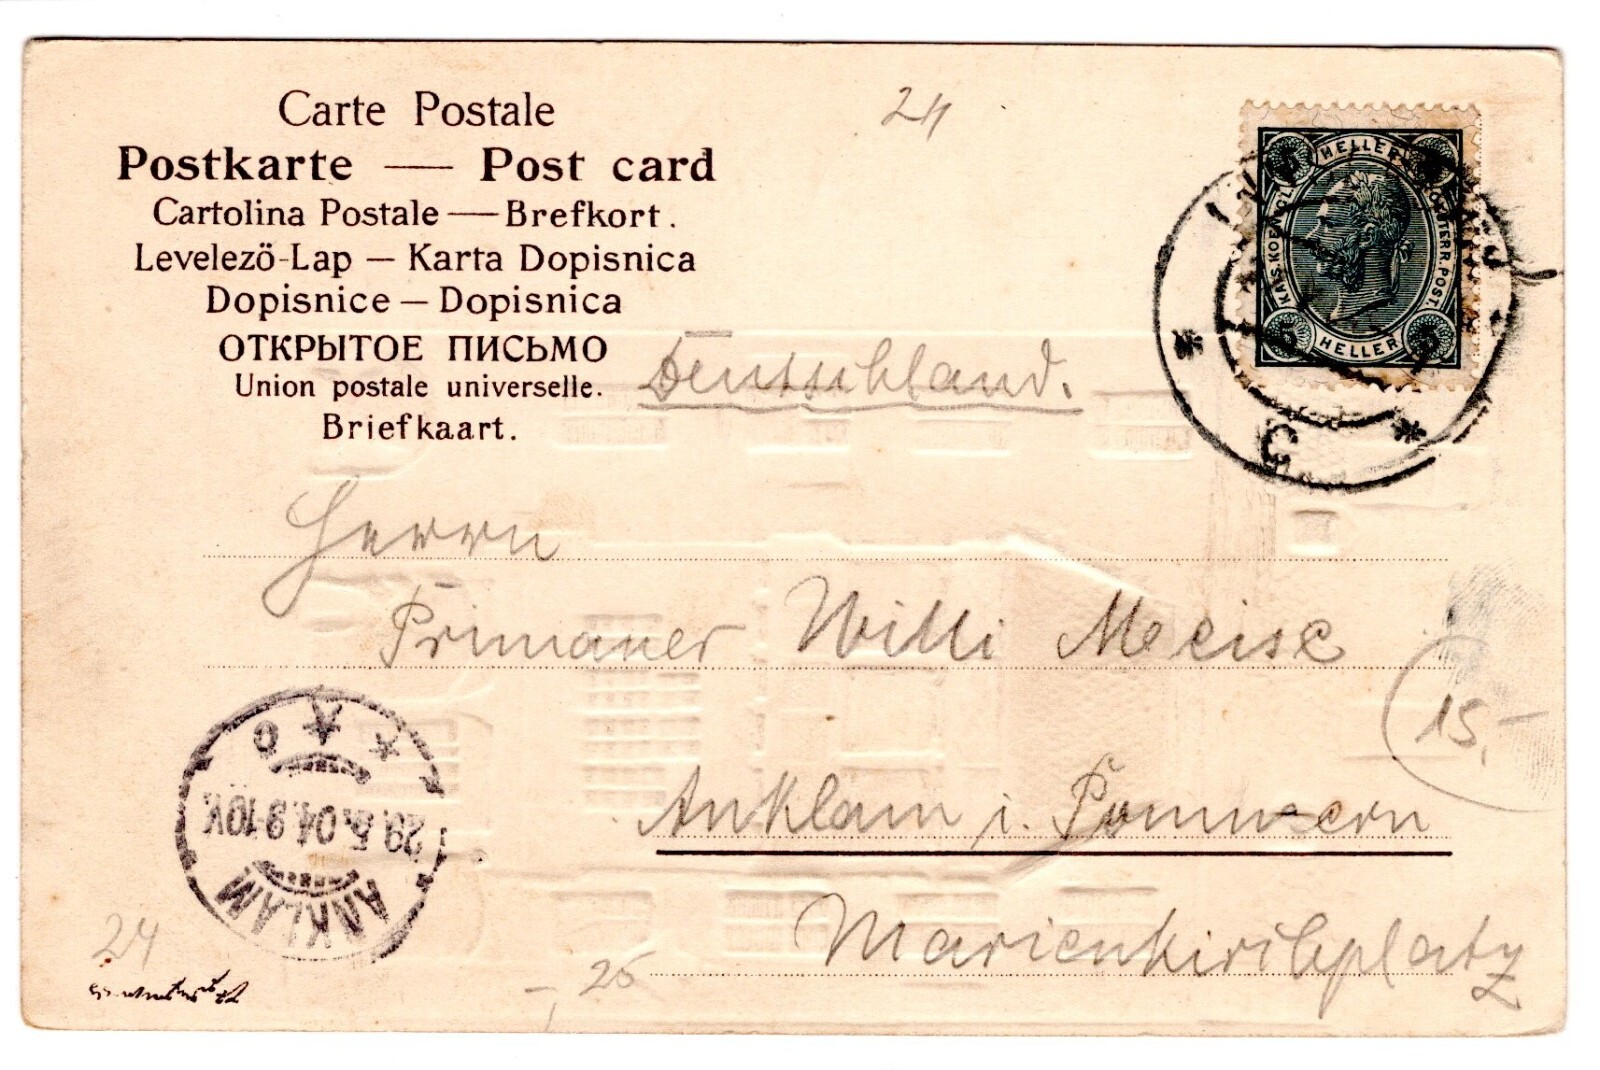 24
Carte Postale
Postkarte — Post card
Cartolina Postale — Brefkort.
Levelező-Lap — Karta Dopisnica
Dopisnice — Dopisnica
ОТКРЫТОЕ ПИСЬМО
Union postale universelle.
Briefkaart.
HELLER
KAIS. KOENIGL. OESTERR. POST.
5 HELLER 5
Deutschland.
Herrn
Primaner Willi Meise
15,-
Anklam i. Pommern
Marienkirchplatz
29.5.04.9-10V.
ANKLAM
24
-,25